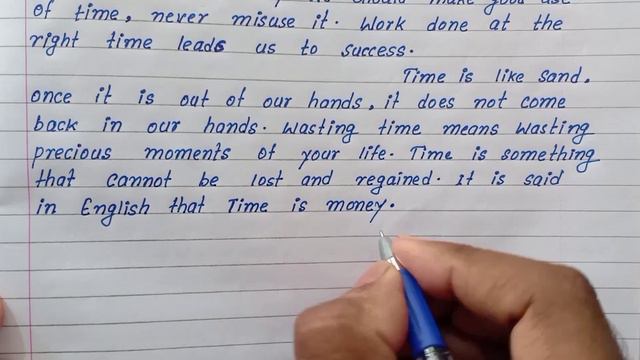 should make good use
of time, never misuse it. Work done at the
right time leads us to success.
Time is like sand,
once it is out of our hands, it does not come
back in our hands. Wasting time means wasting
precious moments of your life. Time is something
that cannot be lost and regained. It is said
in English that Time is money.